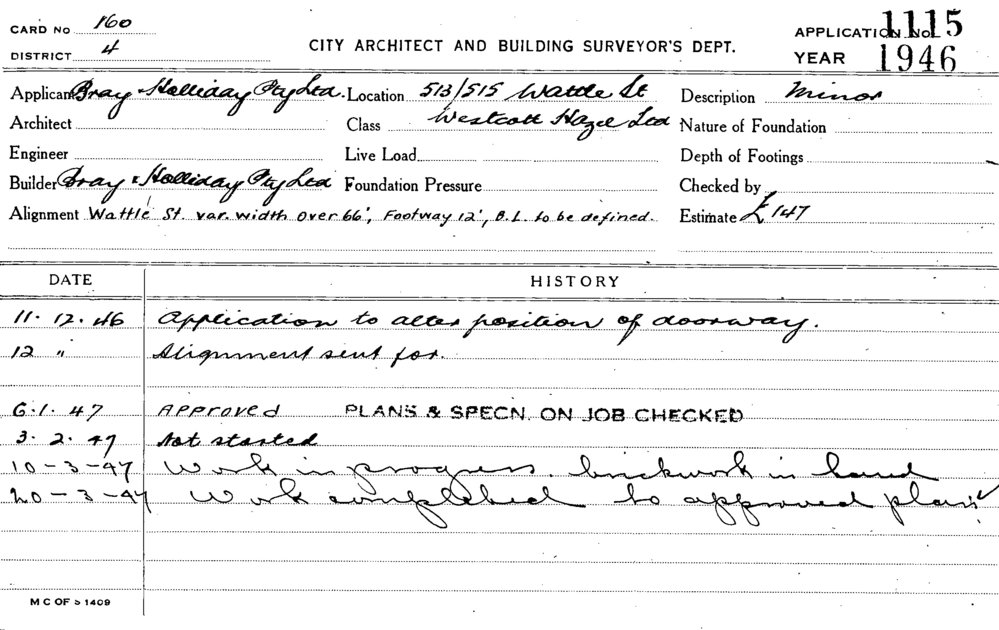 CARD No 160
DISTRICT 4
CITY ARCHITECT AND BUILDING SURVEYOR'S DEPT.
APPLICATION No. 1115
YEAR 1946
Applicant Bray & Holliday Pty Ltd. Location 513/515 Wattle St Description Minor
Architect Class Westcott Hazel Ltd Nature of Foundation
Engineer Live Load Depth of Footings
Builder Bray & Holliday Pty Ltd Foundation Pressure Checked by
Alignment Wattle St. var. width over 66', Footway 12', B.L. to be defined. Estimate £147
DATE HISTORY
11. 12. 46 Application to alter position of doorway.
12 " Alignment sent for.
6. 1. 47 Approved PLANS & SPECN. ON JOB CHECKED
3. 2. 47 Not started
10-3-47 Work in progress. brickwork in hand
20-3-47 Work completed to approved plans
M C OF S 1409